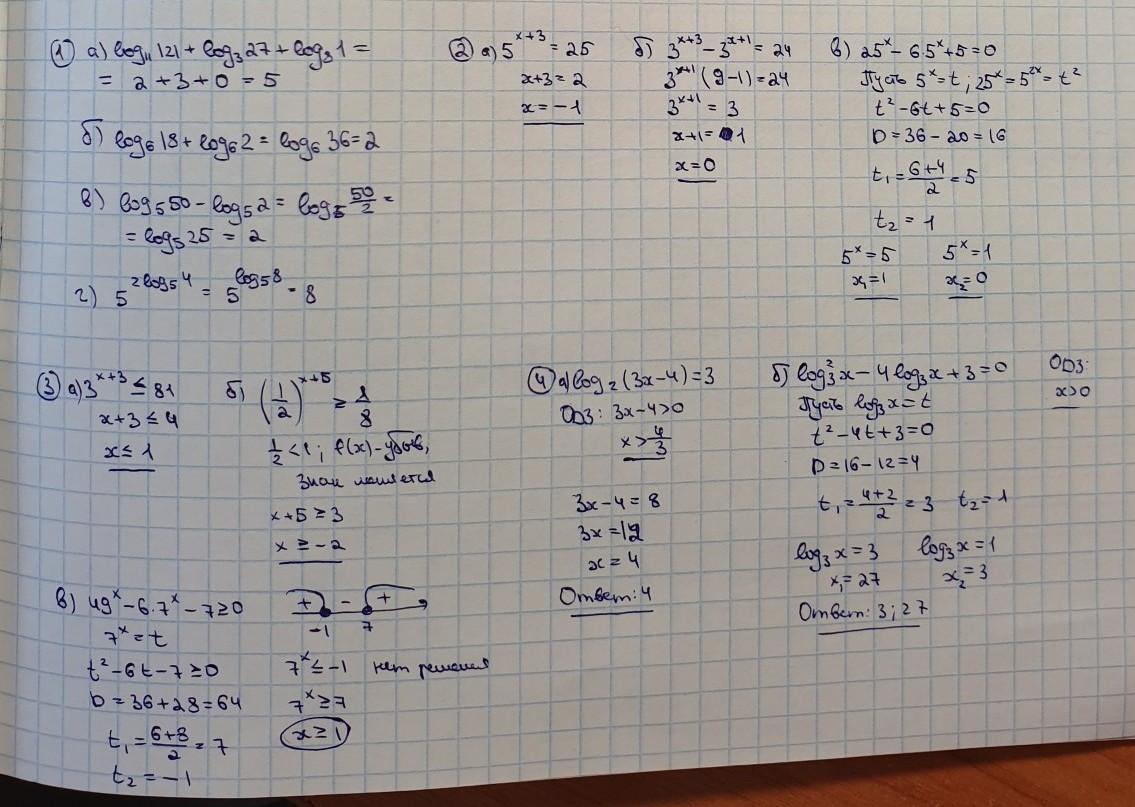 ① а) log₁₁121 + log₃27 + log₃1 =
= 2 + 3 + 0 = 5
б) log₆18 + log₆2 = log₆36 = 2
в) log₅50 - log₅2 = log₅ 50/2 =
= log₅25 = 2
г) 5^(2log₅4) = 5^(log₅8) = 8
② а) 5^(x+3) = 25
x+3 = 2
x = -1
б) 3^(x+3) - 3^(x+1) = 24
3^(x+1) (9-1) = 24
3^(x+1) = 3
x+1 = 1
x = 0
в) 25^x - 6·5^x + 5 = 0
Пусть 5^x = t ; 25^x = 5^(2x) = t²
t² - 6t + 5 = 0
D = 36 - 20 = 16
t₁ = (6+4)/2 = 5
t₂ = 1
5^x = 5 5^x = 1
x₁ = 1 x₂ = 0
③ а) 3^(x+3) ≤ 81
x+3 ≤ 4
x ≤ 1
б) (1/2)^(x+5) ≥ 1/8
1/2 < 1 ; f(x) - убыв,
знак меняется
x+5 ≥ 3
x ≥ -2
в) 49^x - 6·7^x - 7 ≥ 0
7^x = t
t² - 6t - 7 ≥ 0
D = 36 + 28 = 64
t₁ = (6+8)/2 = 7
t₂ = -1
+ - +
-1 7
7^x ≤ -1 нет решения
7^x ≥ 7
x ≥ 1
④ а) log₂(3x-4) = 3
ОДЗ: 3x-4 > 0
x > 4/3
3x-4 = 8
3x = 12
x = 4
Ответ: 4
б) log₃²x - 4log₃x + 3 = 0
ОДЗ:
x>0
Пусть log₃x = t
t² - 4t + 3 = 0
D = 16 - 12 = 4
t₁ = (4+2)/2 = 3 t₂ = 1
log₃x = 3 log₃x = 1
x₁ = 27 x₂ = 3
Ответ: 3; 27